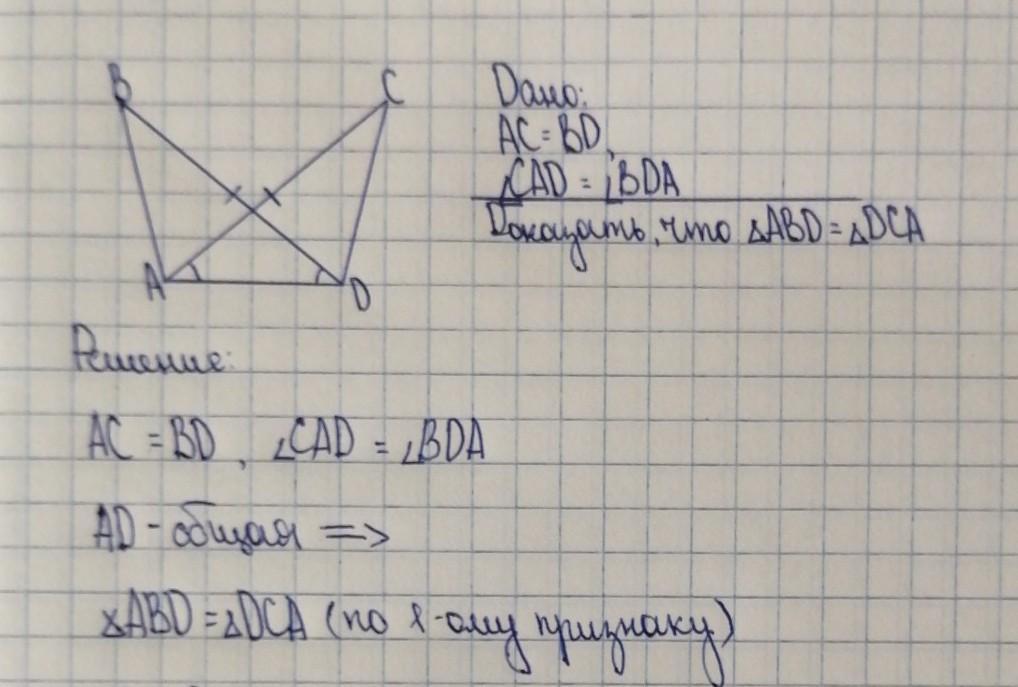 B
C
A
D
Дано:
AC = BD,
∠CAD = ∠BDA
Доказать, что △ABD = △DCA
Решение:
AC = BD, ∠CAD = ∠BDA
AD - общая =>
△ABD = △DCA (по 1-ому признаку)